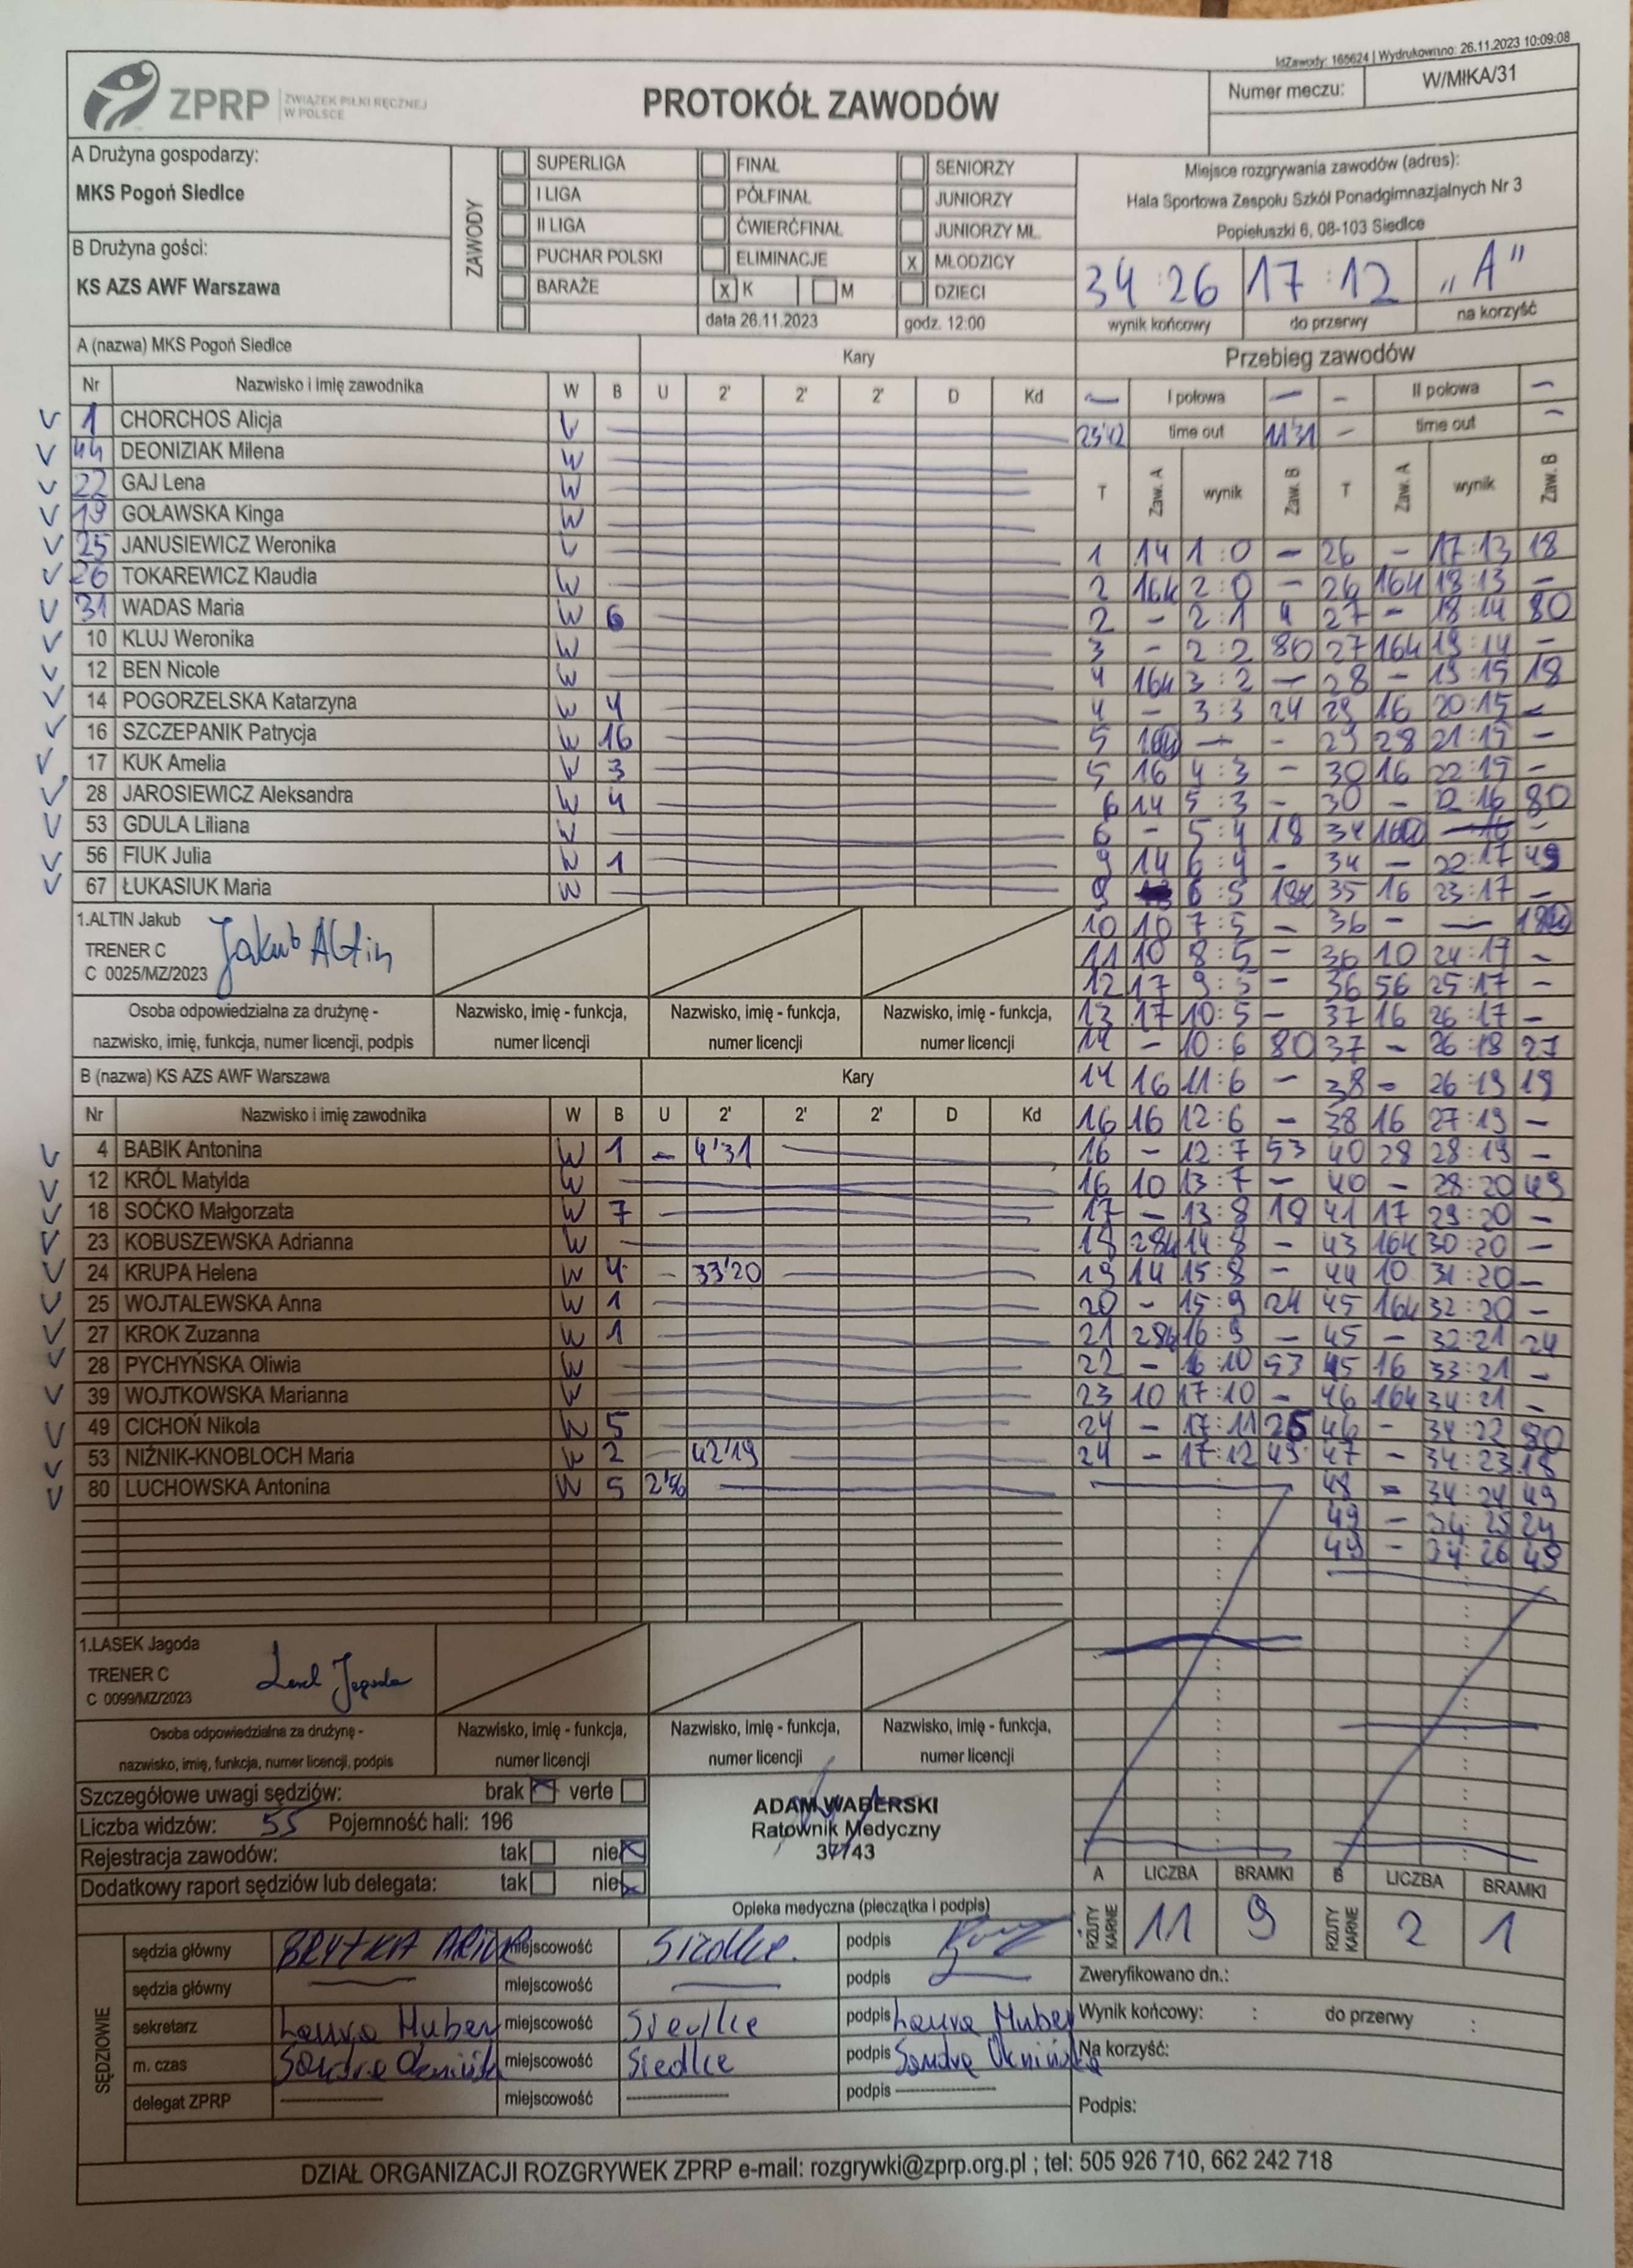 IdZawody: 165624 | Wydrukowano: 26.11.2023 10:09:08
ZPRP ZWIĄZEK PIŁKI RĘCZNEJ W POLSCE
PROTOKÓŁ ZAWODÓW
Numer meczu: W/MłKA/31
A Drużyna gospodarzy:
MKS Pogoń Siedlce
B Drużyna gości:
KS AZS AWF Warszawa
ZAWODY
SUPERLIGA FINAŁ SENIORZY
I LIGA PÓŁFINAŁ JUNIORZY
II LIGA ĆWIERĆFINAŁ JUNIORZY MŁ.
PUCHAR POLSKI ELIMINACJE X MŁODZICY
BARAŻE X K M DZIECI
data 26.11.2023 godz. 12:00
Miejsce rozgrywania zawodów (adres):
Hala Sportowa Zespołu Szkół Ponadgimnazjalnych Nr 3
Popiełuszki 6, 08-103 Siedlce
34:26 17:12 „A”
wynik końcowy do przerwy na korzyść
A (nazwa) MKS Pogoń Siedlce Kary
Nr Nazwisko i imię zawodnika W B U 2' 2' 2' D Kd
1 CHORCHOS Alicja W
44 DEONIZIAK Milena W
22 GAJ Lena W
19 GOŁAWSKA Kinga W
25 JANUSIEWICZ Weronika W
26 TOKAREWICZ Klaudia W
31 WADAS Maria W 6
10 KLUJ Weronika W
12 BEN Nicole W
14 POGORZELSKA Katarzyna W 4
16 SZCZEPANIK Patrycja W 16
17 KUK Amelia W 3
28 JAROSIEWICZ Aleksandra W 4
53 GDULA Liliana W
56 FIUK Julia W 1
67 ŁUKASIUK Maria W
1.ALTIN Jakub
TRENER C
C 0025/MZ/2023
Jakub Altin
Osoba odpowiedzialna za drużynę -
nazwisko, imię, funkcja, numer licencji, podpis
Nazwisko, imię - funkcja,
numer licencji
Nazwisko, imię - funkcja,
numer licencji
Nazwisko, imię - funkcja,
numer licencji
B (nazwa) KS AZS AWF Warszawa Kary
Nr Nazwisko i imię zawodnika W B U 2' 2' 2' D Kd
4 BABIK Antonina W 1 - 4'31
12 KRÓL Matylda W
18 SOĆKO Małgorzata W 7
23 KOBUSZEWSKA Adrianna W
24 KRUPA Helena W 4 - 33'20
25 WOJTALEWSKA Anna W 1
27 KROK Zuzanna W 1
28 PYCHYŃSKA Oliwia W
39 WOJTKOWSKA Marianna W
49 CICHOŃ Nikola W 5
53 NIŻNIK-KNOBLOCH Maria W 2 - 42'19
80 LUCHOWSKA Antonina W 5
1.LASEK Jagoda
TRENER C
C 0099/MZ/2023
Lasek Jagoda
Osoba odpowiedzialna za drużynę -
nazwisko, imię, funkcja, numer licencji, podpis
Nazwisko, imię - funkcja,
numer licencji
Nazwisko, imię - funkcja,
numer licencji
Nazwisko, imię - funkcja,
numer licencji
Przebieg zawodów
I połowa II połowa
23'42 time out 11'31 - time out -
T Zaw. A wynik Zaw. B T Zaw. A wynik Zaw. B
1 14 1:0 - 26 - 17:13 18
2 16k 2:0 - 26 16k 18:13 -
2 - 2:1 4 27 - 18:14 80
3 - 2:2 80 27 16k 19:14 -
4 16k 3:2 - 28 - 19:15 18
4 - 3:3 24 29 16 20:15 -
5 - - 29 28 21:15 -
5 16 4:3 - 30 16 22:15 -
6 14 5:3 - 30 - 16 80
6 - 5:4 18 34 -
9 14 6:4 - 34 - 22:17 49
9 6:5 18k 35 16 23:17 -
10 10 7:5 - 36 - -
11 10 8:5 - 36 10 24:17 -
12 17 9:5 - 36 56 25:17 -
13 17 10:5 - 37 16 26:17 -
14 - 10:6 80 37 - 26:18 27
14 16 11:6 - 38 - 26:19 19
16 16 12:6 - 38 16 27:19 -
16 - 12:7 53 40 28 28:19 -
16 10 13:7 - 40 - 28:20 49
17 - 13:8 18 41 17 29:20 -
18 28k 14:8 - 43 16k 30:20 -
19 14 15:8 - 44 10 31:20 -
20 - 15:9 24 45 16k 32:20 -
21 28k 16:9 - 45 - 32:21 24
22 - 16:10 53 45 16 33:21 -
23 10 17:10 - 46 16k 34:21 -
24 - 17:11 25 46 - 34:22 80
24 - 17:12 49 47 - 34:23 18
48 - 34:24 49
49 - 34:25 24
49 - 34:26 49
Szczegółowe uwagi sędziów: brak verte
Liczba widzów: 55 Pojemność hali: 196
Rejestracja zawodów: tak nie
Dodatkowy raport sędziów lub delegata: tak nie
ADAM WABERSKI
Ratownik Medyczny
37743
Opieka medyczna (pieczątka i podpis)
A LICZBA BRAMKI B LICZBA BRAMKI
RZUTY KARNE 11 9 RZUTY KARNE 2 1
SĘDZIOWIE
sędzia główny miejscowość Siedlce podpis
sędzia główny miejscowość podpis
sekretarz Laura Huber miejscowość Siedlce podpis Laura Huber
m. czas miejscowość Siedlce podpis
delegat ZPRP miejscowość podpis
Zweryfikowano dn.:
Wynik końcowy: : do przerwy :
Na korzyść:
Podpis:
DZIAŁ ORGANIZACJI ROZGRYWEK ZPRP e-mail: rozgrywki@zprp.org.pl ; tel: 505 926 710, 662 242 718